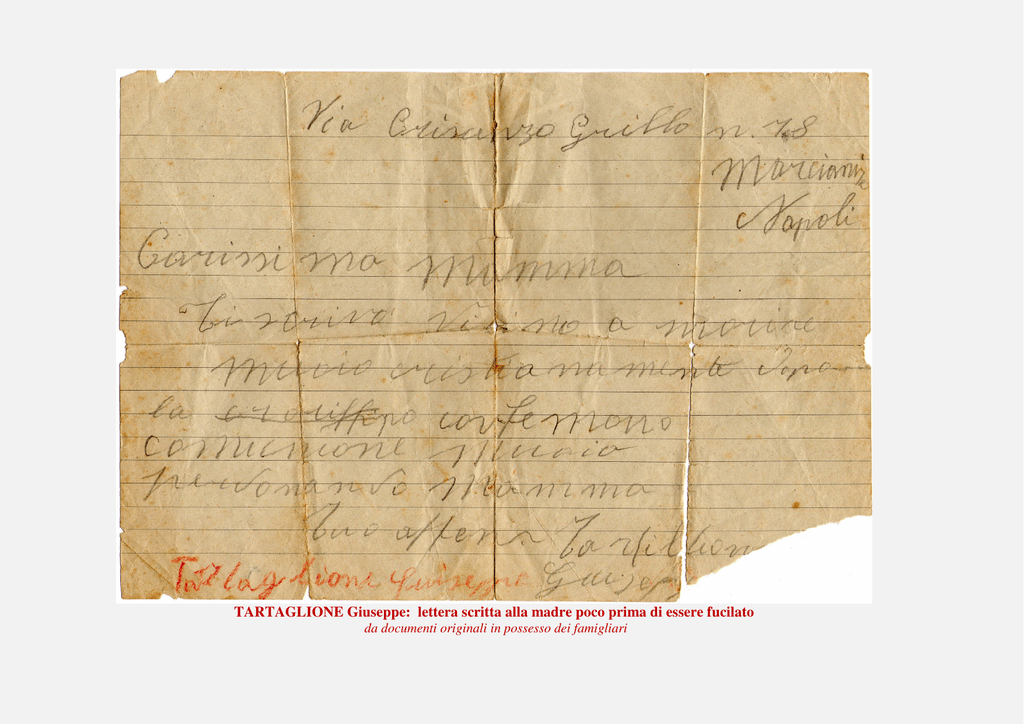 Via Crisanzo Grillo n. 78
Marcianiz
Napoli
Carissima Mamma
Ti scrivo vicino a morire
muoio cristianamente Dopo
la confemono
comunione muoio
perdonando Mamma
Tuo affen
Tartaglione Guiseppe
TARTAGLIONE Giuseppe: lettera scritta alla madre poco prima di essere fucilato
da documenti originali in possesso dei famigliari